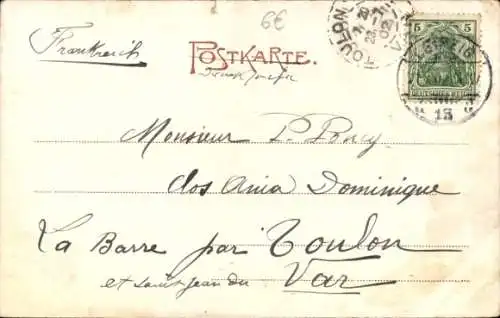 6€
Frankreich
POSTKARTE.
TOULON
VAR
5 5
DEUTSCHES REICH
LEIPZIG
13
Monsieur P. Poncy
clos Ania Dominique
La Barre par Toulon
et Saint Jean du Var